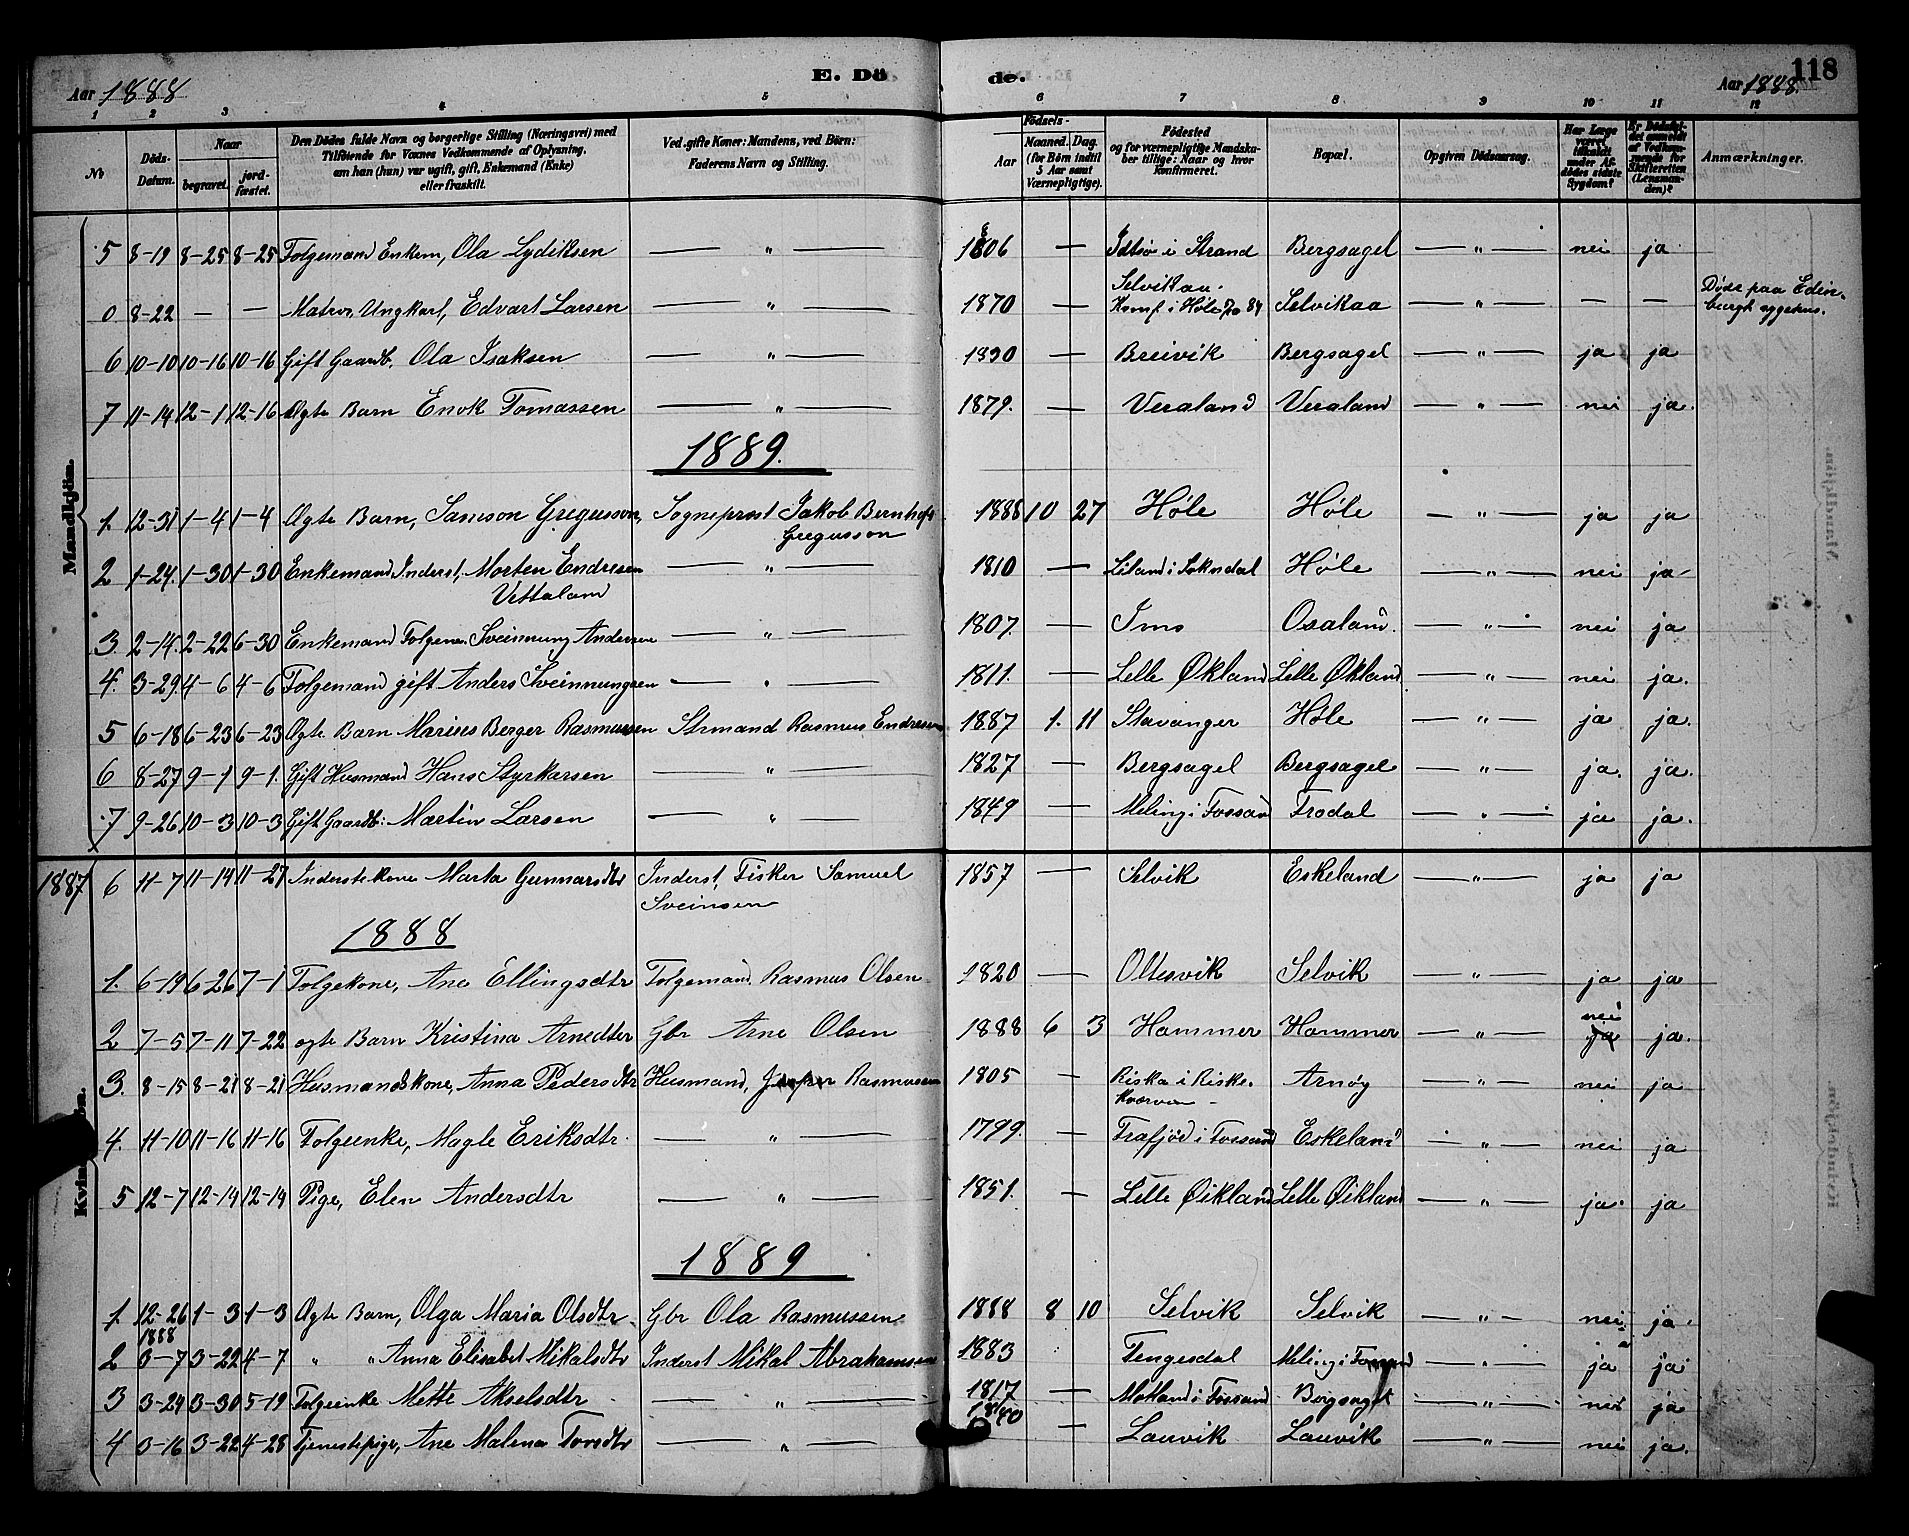 Aar 1888 E. Dö de. Aar 1888. 118
1 2 3 4 5 6 7 8 9 10 11 12
№ Döds-Datum. Naar begravet. jordfæstet. Den Dödes fulde Navn og borgerlige Stilling (Næringsvei) med Tilföiende for Voxnes Vedkommende af Oplysning, om han (hun) var ugift, gift, Enkemand (Enke) eller fraskilt. Ved gifte Koner: Mandens, ved Börn: Faderens Navn og Stilling. Födsels- Aar Maaned. Dag. (for Börn indtil 5 Aar samt Værnepligtige). Födested og for værnepligtige Mandskaber tillige: Naar og hvor konfirmeret. Bopæl. Opgiven Dödsaarsag. Har Læge været tilkaldt under Afdödes sidste Sygdom? Er Dödsfaldet anmeldt af Vedkommende for Skifteretten (Lensmanden)? Anmærkninger.
Mandkjön.
5 8-19 8-25 8-25 Folgemand Enkem, Ola Lydiksen — " — 1806 — Idtsø i Strand Bergsagel — " — nei ja
0 8-22 — — Matros, Ungkarl, Edvart Larsen — " — 1870 — Selvikaa. Konf i Høle 84 Selvikaa — " — — — Døde paa Edinburgh sygehus.
6 10-10 10-16 10-16 Gift Gaardb, Ola Isaksen — " — 1830 — Breivik Bergsagel — " — ja ja
7 11-14 12-1 12-16 Ægte Barn Enok Tomassen — " — 1879. — Veraland Veraland — " — nei ja.
1889.
1. 12-31 1-4 1-4 Ægte Barn, Samson Gregusson, Sogneprest Jakob Bernhoft Gregusson 1888 10 27 Høle Høle — " — ja ja
2 1-24. 1-30 1-30 Enkemand Inderst, Morten Endresen Vettaland — " — 1810 — Liland i Sokndal Høle — " — nei ja
3. 2-14. 2-22 6-30 Enkemand Folgem. Sveinnung Andersen — " — 1807. — Ims Osaland. — " — nei ja
4. 3-29 4-6 4-6 Folgemand gift Anders Sveinnungsen — " — 1811. — Lille Økland Lille Økland — " — nei ja.
5 6-18 6-23 6-23 Ægte Barn Marius Berger Rasmussen Strmand Rasmus Endresen 1887 1. 11 Stavanger Høle — " — ja ja.
6 8-27 9-1 9-1. Gift Husmand Hans Styrkarsen — " — 1827 — Bergsagel Bergsagel — " — ja. ja.
7 9-26 10-3 10-3 Gift Gaardb: Martin Larsen — " — 1849 — Meling i Fossan Frodal — " — ja ja.
Kvindekjön.
1887 6 11-7 11-14 11-27 Inderstekone Marta Gunnarsdtr Inderst, Fisker Samuel Sveinsen 1857 — Selvik Eskeland — " — ja ja
1888
1. 6-19 6-26 7-1 Folgekone, Ane Ellingsdtr Folgemand. Rasmus Olsen 1820 — Oltesvik Selvik — " — ja ja
2 7-5 7-11 7-22 ægte Barn Kristina Arnedtr Gbr Arne Olsen 1888 6 3 Hommer Hommer — " — nei ja ja.
3. 8-15 8-21 8-21 Husmandskone, Anna Pedersdtr Husmand, Rasmussen 1805 — Riska i Riske. Arnøy — " — nei ja
4. 11-10 11-16 11-16 Folgeenke, Magle Eriksdtr. — " — 1799. — Frafjord i Fossand Eskeland — " — nei ja
5 12-7 12-14 12-14 Pige, Elen Andersdtr — " — 1851. — Lille Øikland Lille Øikland — " — ja ja
1889
1. 12-26 1888 1-3 1-3 Ægte Barn, Olga Maria Olsdtr. Gbr Ola Rasmussen. 1888 8 10 Selvik Selvik — " — nei ja
2 3-7 3-22 4-7 " " Anna Elisabet Mikalsdtr Inderst Mikal Abrahamsen 1883 Tengesdal Meling i Fossand — " — ja ja
3 3-24 3-30 5-19 Folgeenke Mette Akselsdtr — " — 1817 — Motland i Fossand Bergsagel — " — nei ja
4 3-16 3-22 4-28 Tjenestepige, Ane Malena Torsdtr — " — 1840 — Lauvik Lauvik — " — nei ja.